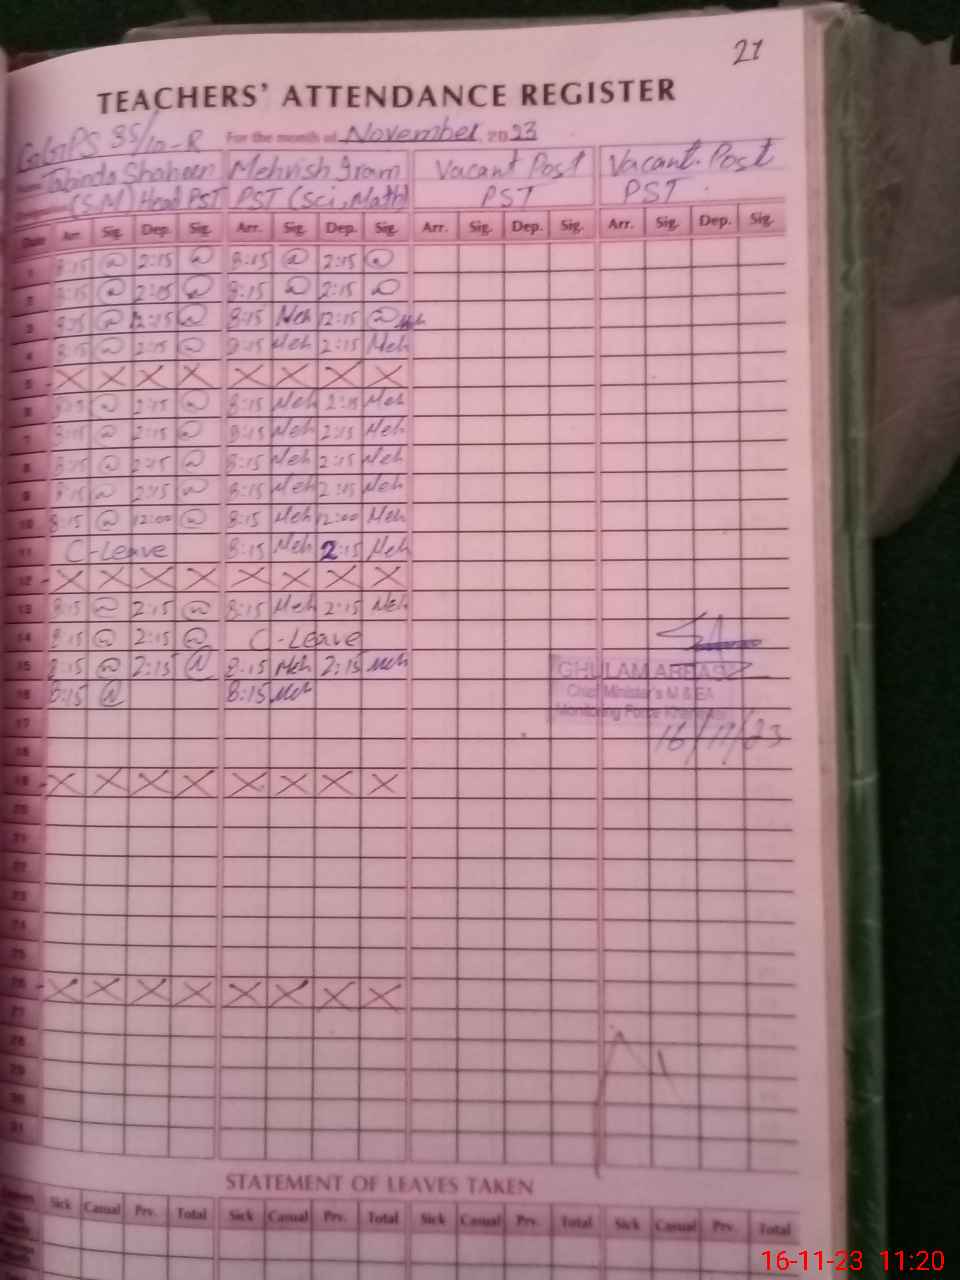 21
TEACHERS' ATTENDANCE REGISTER
GGPS 35/10-R For the month of November, 2023
Name Tabinda Shaheen Mehvish Iram Vacant Post Vacant Post
(S.M) Head PST PST (Sci, Math) PST PST
Date Arr. Sig. Dep. Sig. Arr. Sig. Dep. Sig. Arr. Sig. Dep. Sig. Arr. Sig. Dep. Sig.
1 8:15 2:15 8:15 2:15
2 8:15 2:15 8:15 2:15
3 8:15 12:15 8:15 Meh 12:15 Meh
4 8:15 2:15 8:15 Meh 2:15 Meh
5 X X X X X X X X
6 8:15 2:15 8:15 Meh 2:15 Meh
7 8:15 2:15 8:15 Meh 2:15 Meh
8 8:15 2:15 8:15 Meh 2:15 Meh
9 8:15 2:15 8:15 Meh 2:15 Meh
10 8:15 12:00 8:15 Meh 12:00 Meh
11 C-Leave 8:15 Meh 2:15 Meh
12 X X X X X X X X
13 8:15 2:15 8:15 Meh 2:15 Meh
14 8:15 2:15 C-Leave
15 8:15 2:15 8:15 Meh 2:15 Meh
16 8:15 8:15 Meh
GHULAM ABBAS
Chief Minister's M & EA
Monitoring Force
16/11/23
17
18
19 X X X X X X X X
20
21
22
23
24
25
26 X X X X X X X X
27
28
29
30
31
STATEMENT OF LEAVES TAKEN
Sick Casual Prv. Total Sick Casual Prv. Total Sick Casual Prv. Total Sick Casual Prv. Total
16-11-23 11:20